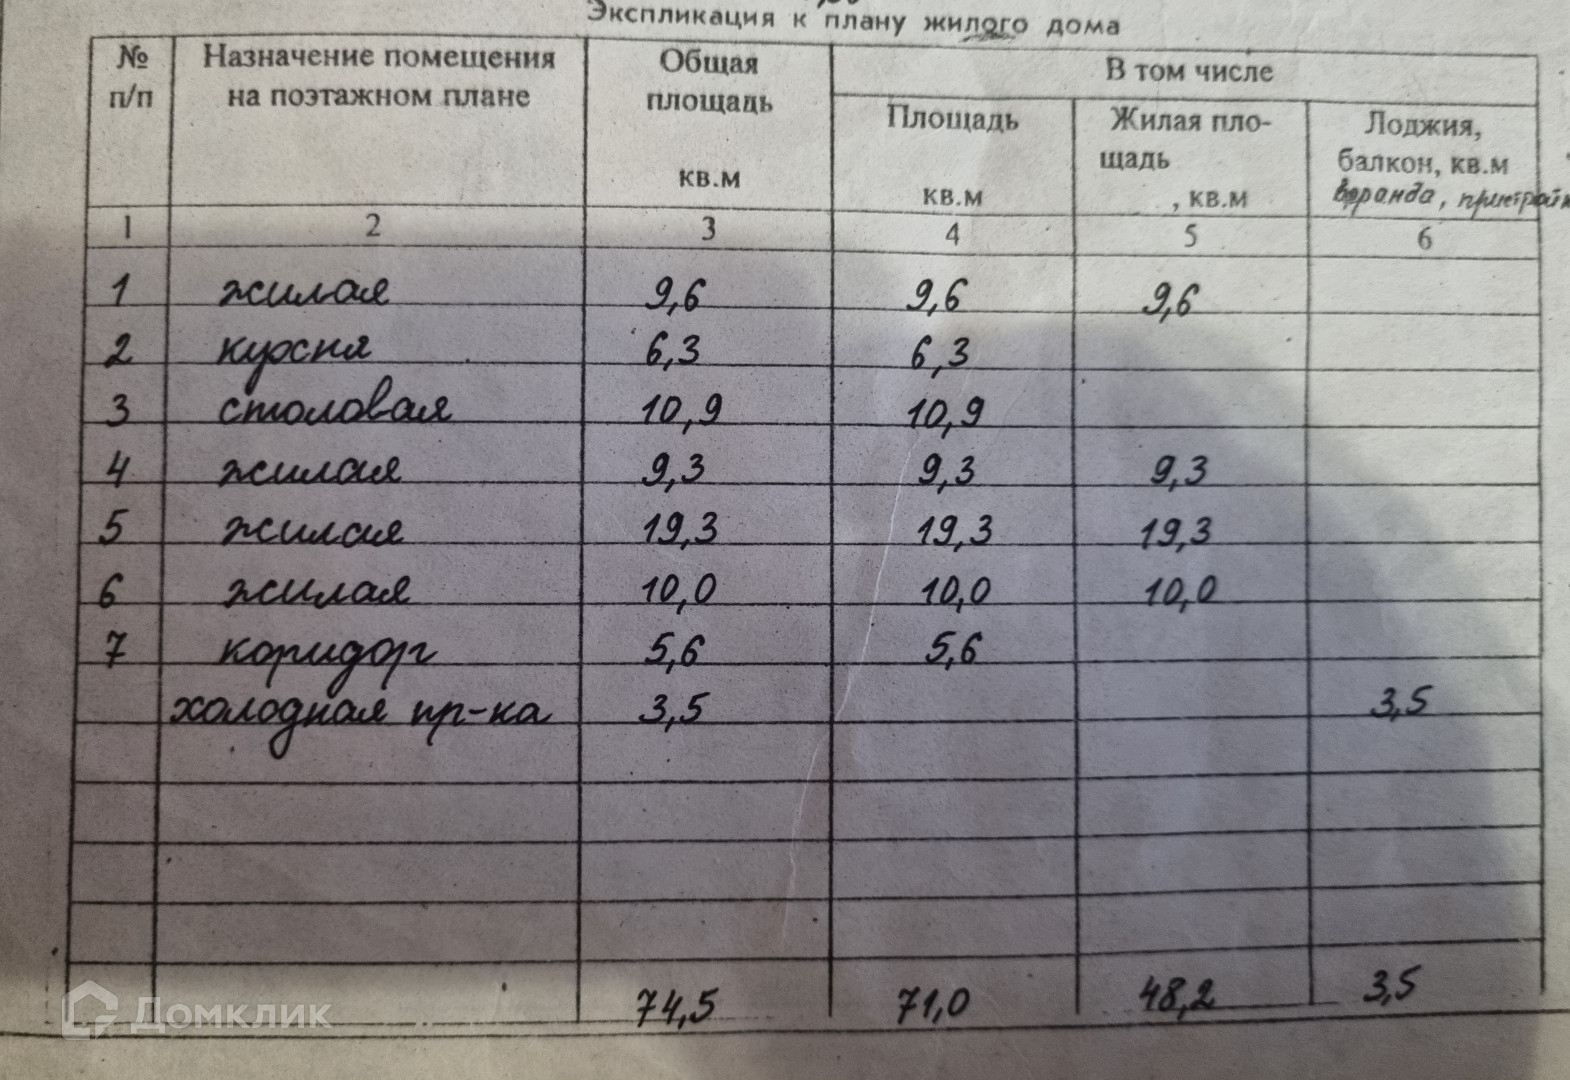 Экспликация к плану жилого дома
№ п/п Назначение помещения на поэтажном плане Общая площадь кв.м В том числе
Площадь кв.м Жилая пло-щадь , кв.м Лоджия, балкон, кв.м веранда, пристройк
1 2 3 4 5 6
1 жилая 9,6 9,6 9,6
2 кухня 6,3 6,3
3 столовая 10,9 10,9
4 жилая 9,3 9,3 9,3
5 жилая 19,3 19,3 19,3
6 жилая 10,0 10,0 10,0
7 коридор 5,6 5,6
холодная пр-ка 3,5 3,5
74,5 71,0 48,2 3,5
Домклик